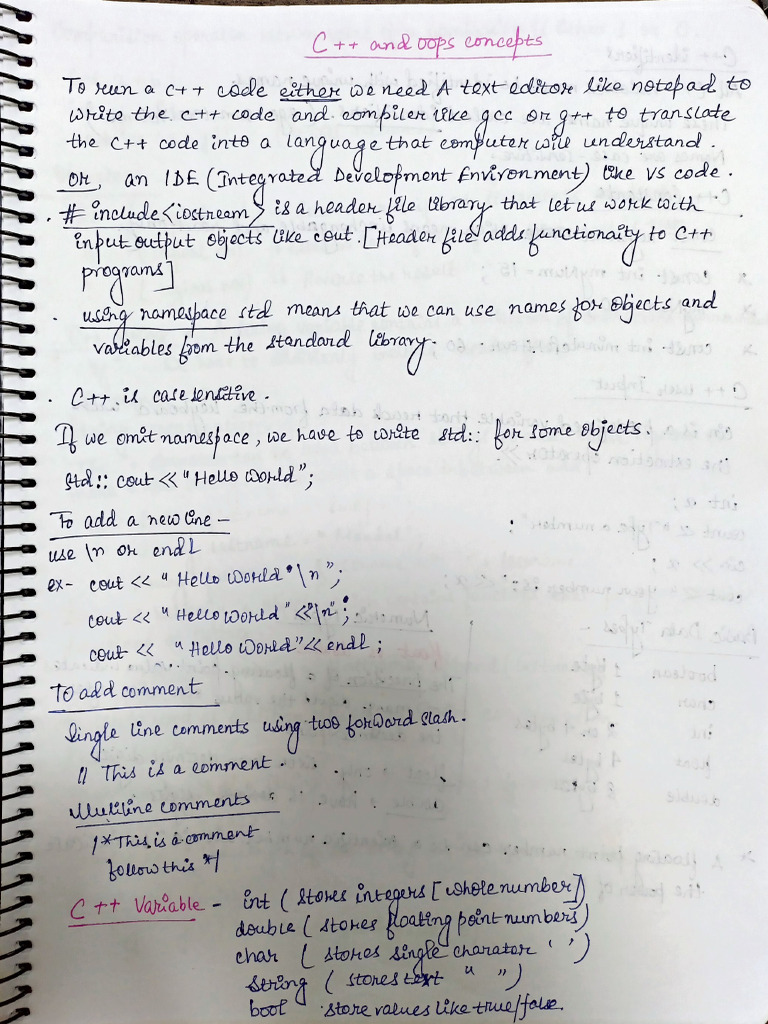 C++ and oops concepts
To run a c++ code either we need A text editor like notepad to
write the c++ code and compiler like gcc or g++ to translate
the C++ code into a language that computer will understand.
OR, an IDE (Integrated Development Environment) like VS code.
. # include<iostream> is a header file library that let us work with
input output objects like cout. [Header file adds functionaity to C++
programs]
. using namespace std means that we can use names for objects and
variables from the standard library.
. C++ is case sensitive.
If we omit namespace, we have to write std:: for some objects.
std:: cout << "Hello World";
To add a new line -
use \n or endl
ex- cout << "Hello World \n";
cout << "Hello World" << "\n";
cout << "Hello World" << endl;
To add comment
Single line comments using two forward slash.
// This is a comment.
Multiline comments
/* This is a comment
follow this */
C++ Variable - int (stores integers [whole number])
double (stores floating point numbers)
char (stores single charater ' ')
string (stores text " ")
bool store values like true/false.